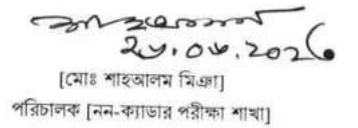 ২৬.০৮.২০২৬
[মোঃ শাহআলম মিঞা]
পরিচালক [নন-ক্যাডার পরীক্ষা শাখা]